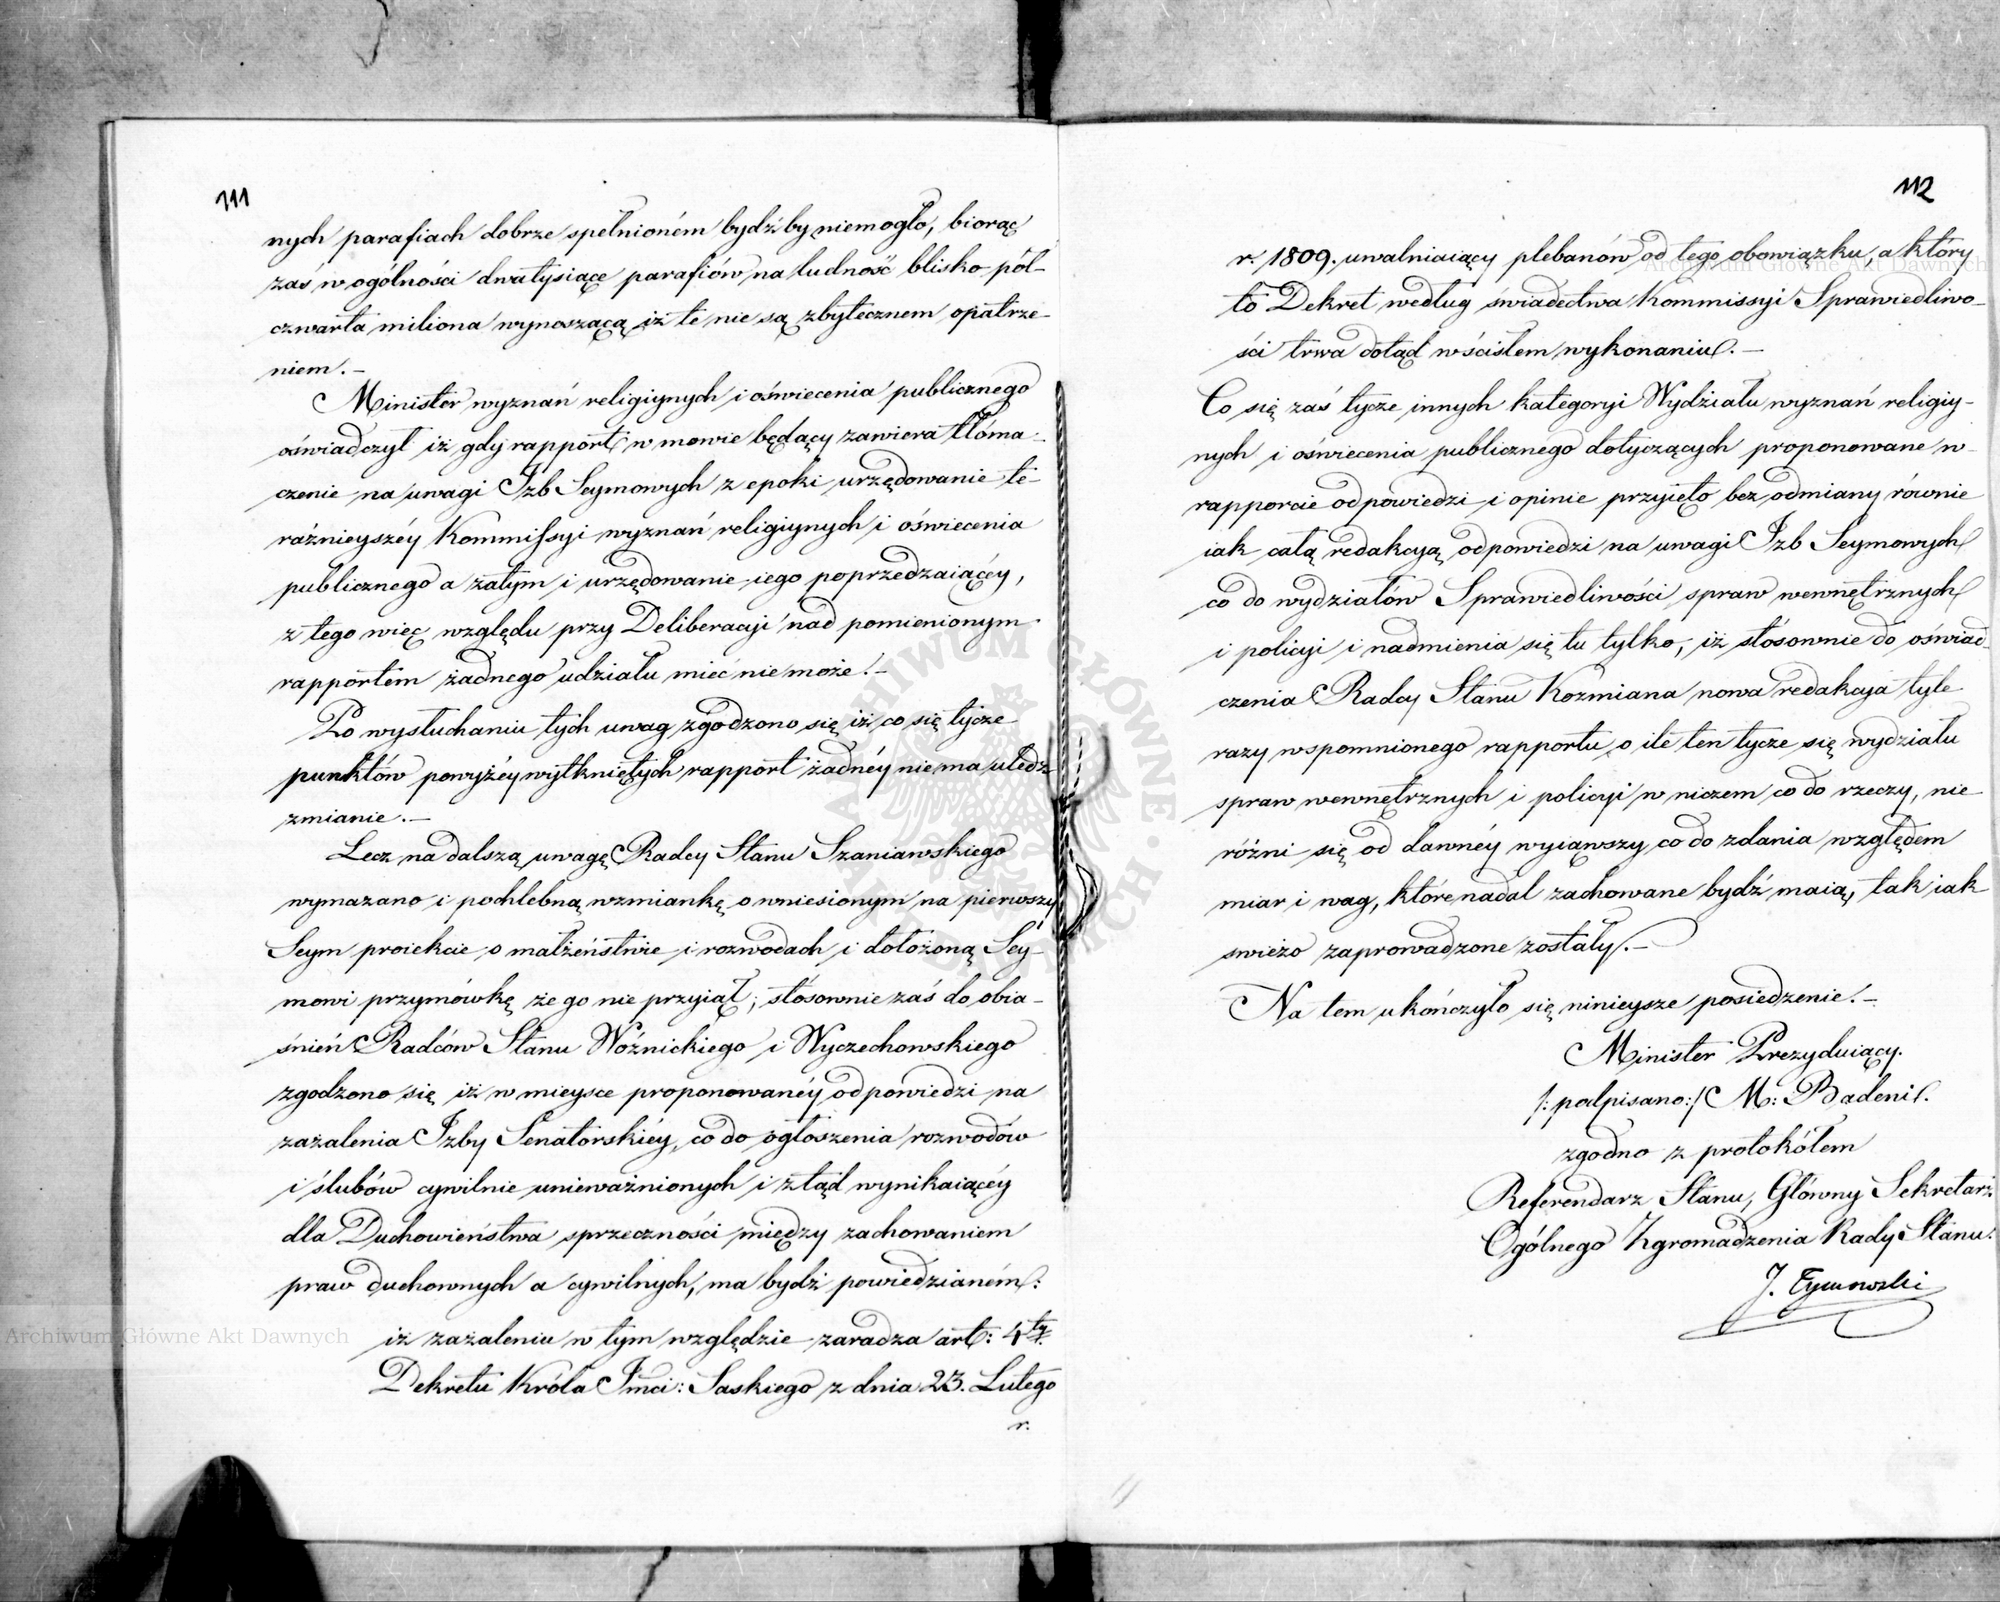 111
nych parafiach dobrze spełnioném bydź by niemogło, biorąc
zaś w ogólności dwatysiące parafiów na ludność blisko pół-
czwarta miliona wynoszącą iż te nie są zbytecznem opatrze-
niem.—
Minister wyznań religiynych i oświecenia publicznego
oświadczył iż gdy rapport w mowie będący zawiera tłóma-
czenie na uwagi Izb Seymowych z epoki urzędowanie te-
raźnieyszéy Kommissyi wyznań religiynych i oświecenia
publicznego a zatym i urzędowanie iego poprzedzaiącéy,
z tego więc względu przy Deliberacyi nad pomienionym
rapportem żadnego udziału mieć nie może.—
Po wysłuchaniu tych uwag zgodzono się iż co się tycze
punktów powyżéy wytkniętych rapport żadnéy nie ma uledz
zmianie.—
Lecz na dalszą uwagę Radcy Stanu Szaniawskiego
wymazano i pochlebną wzmiankę o wniesionym na pierwszy
Seym proiekcie o małżeństwie i rozwodach i dołożoną Sey-
mowi przymówkę że go nie przyiął; stosownie zaś do obia-
śnień Radców Stanu Woźnickiego i Wyczechowskiego
zgodzono się iż w mieysce proponowanéy odpowiedzi na
zażalenia Izby Senatorskiéy, co do ogłoszenia rozwodów
i ślubów cywilnie unieważnionych i ztąd wynikaiącéy
dla Duchowieństwa sprzeczności między zachowaniem
praw duchownych a cywilnych, ma bydź powiedzianém:
iż zażaleniu w tym względzie zaradza art: 4ty
Dekretu Króla Jmci: Saskiego z dnia 23. Lutego
r.
112
r. 1809. uwalniaiący plebanów od tego obowiązku, a który
to Dekret według świadectwa Kommissyi Sprawiedliwo-
ści trwa dotąd w ścisłem wykonaniu.—
Co się zaś tycze innych kategoryi Wydziału wyznań religiy-
nych i oświecenia publicznego dotyczących proponowane w
rapporcie odpowiedzi i opinie przyięto bez odmiany równie
iak całą redakcyą odpowiedzi na uwagi Izb Seymowych
co do wydziałów Sprawiedliwości spraw wewnętrznych
i policyi i nadmienia się tu tylko, iż stósownie do oświad-
czenia Radcy Stanu Kozmiana nowa redakcya tyle
razy wspomnionego rapportu o ile ten tycze się wydziału
spraw wewnętrznych i policyi w niczem co do rzeczy, nie
różni się od dawnéy wyiąwszy co do zdania względem
miar i wag, które nadal zachowane bydź maią, tak iak
swieżo zaprowadzone zostały.—
Na tem ukończyło się ninieysze posiedzenie.—
Minister Prezyduiący.
/: podpisano:/ M: Badeni.
zgodno z protokółem
Referendarz Stanu, Główny Sekretarz
Ogólnego Zgromadzenia Rady Stanu.
J. Tymowski
Archiwum Główne Akt Dawnych
Archiwum Główne Akt Dawnych
ARCHIWUM GŁÓWNE AKT DAWNYCH